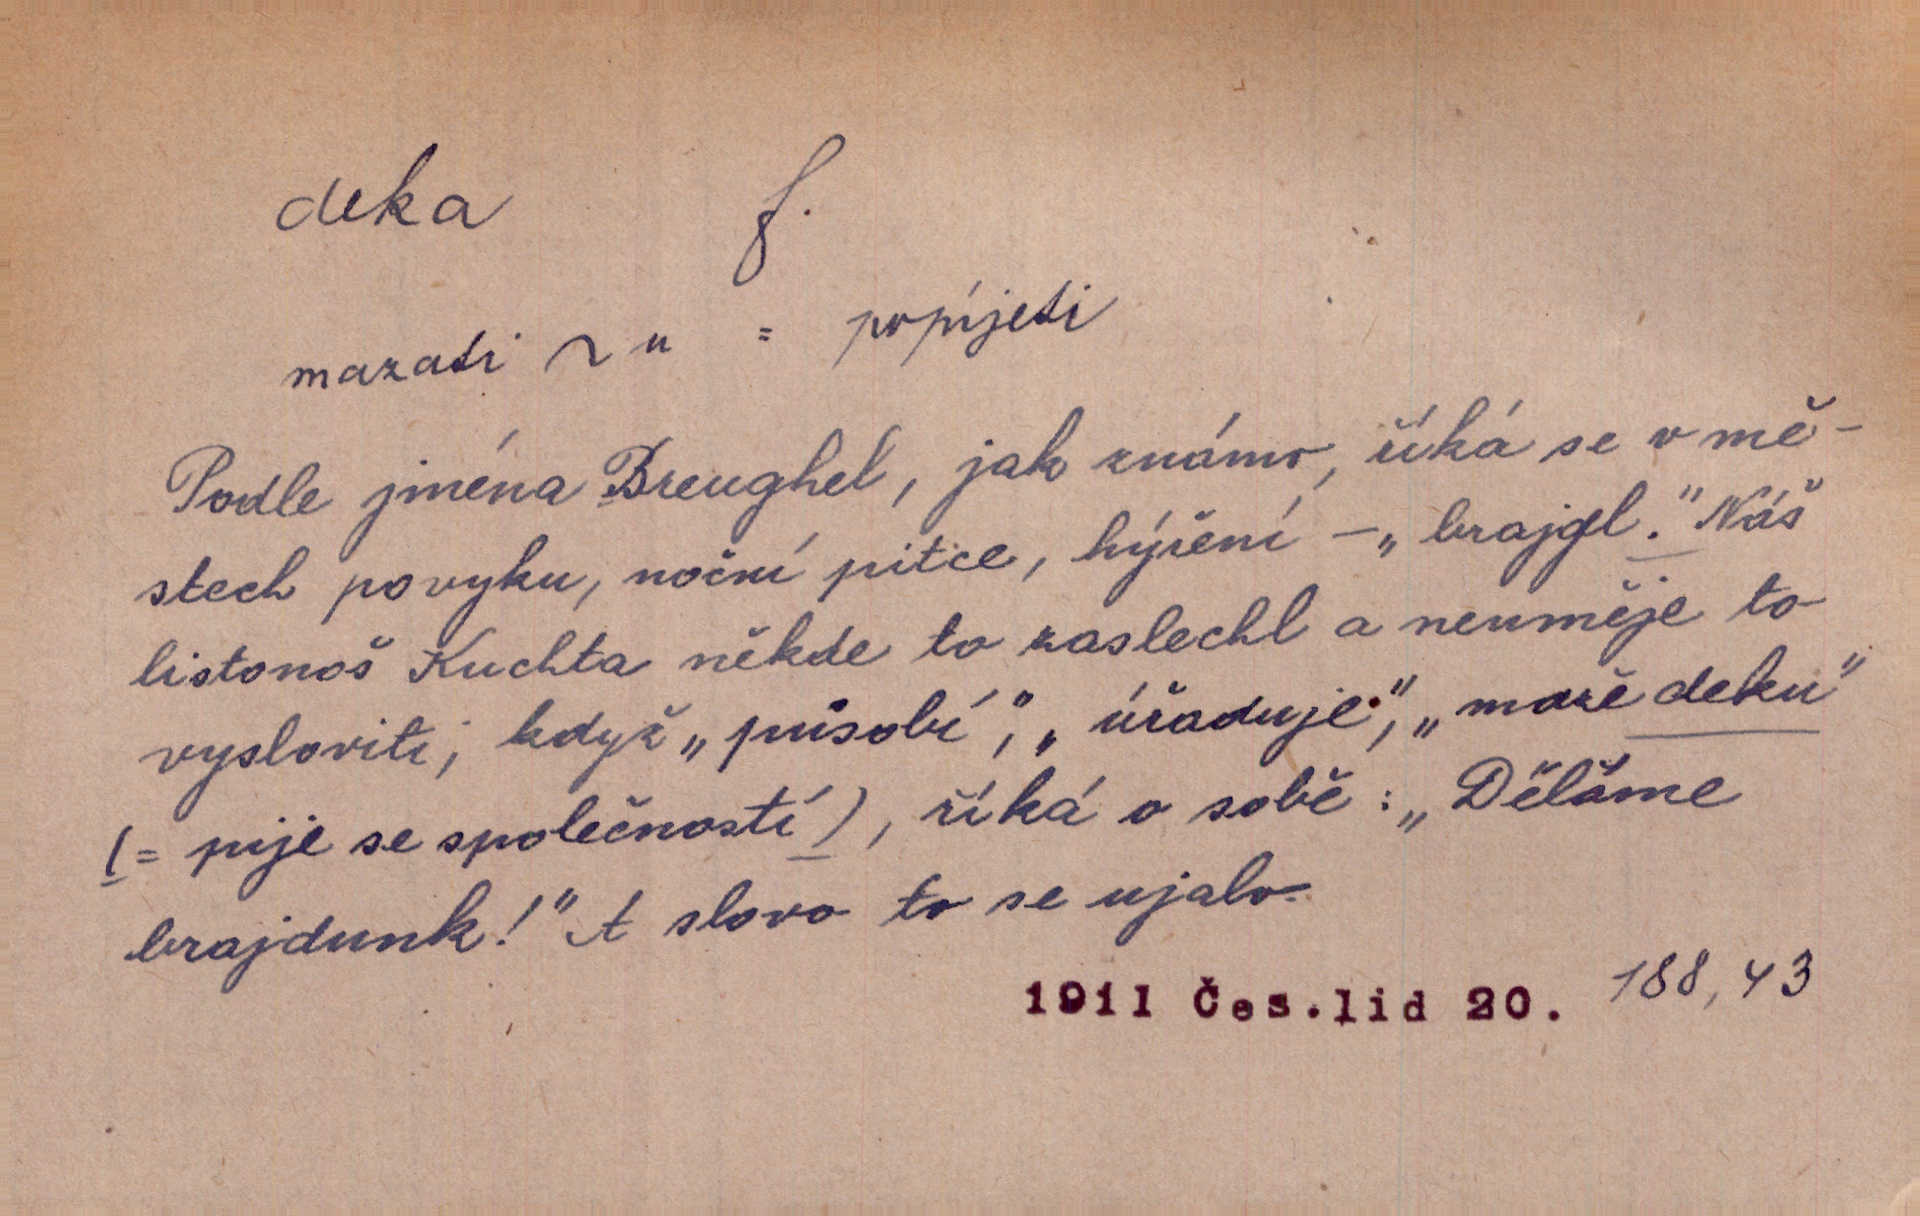 deka f.
mazati ~ u = popíjeti
Podle jména Breughel, jak známo, říká se v mě-
stech povyku, noční pitce, hýření – „brajgl." Náš
listonoš Kuchta někde to zaslechl a neuměje to
vysloviti; když „působí", „úřaduje", „maže deku"
(= pije se společností), říká o sobě: „Děláme
brajdunk!" A slovo to se ujalo.
1911 Čes.lid 20. 188,43